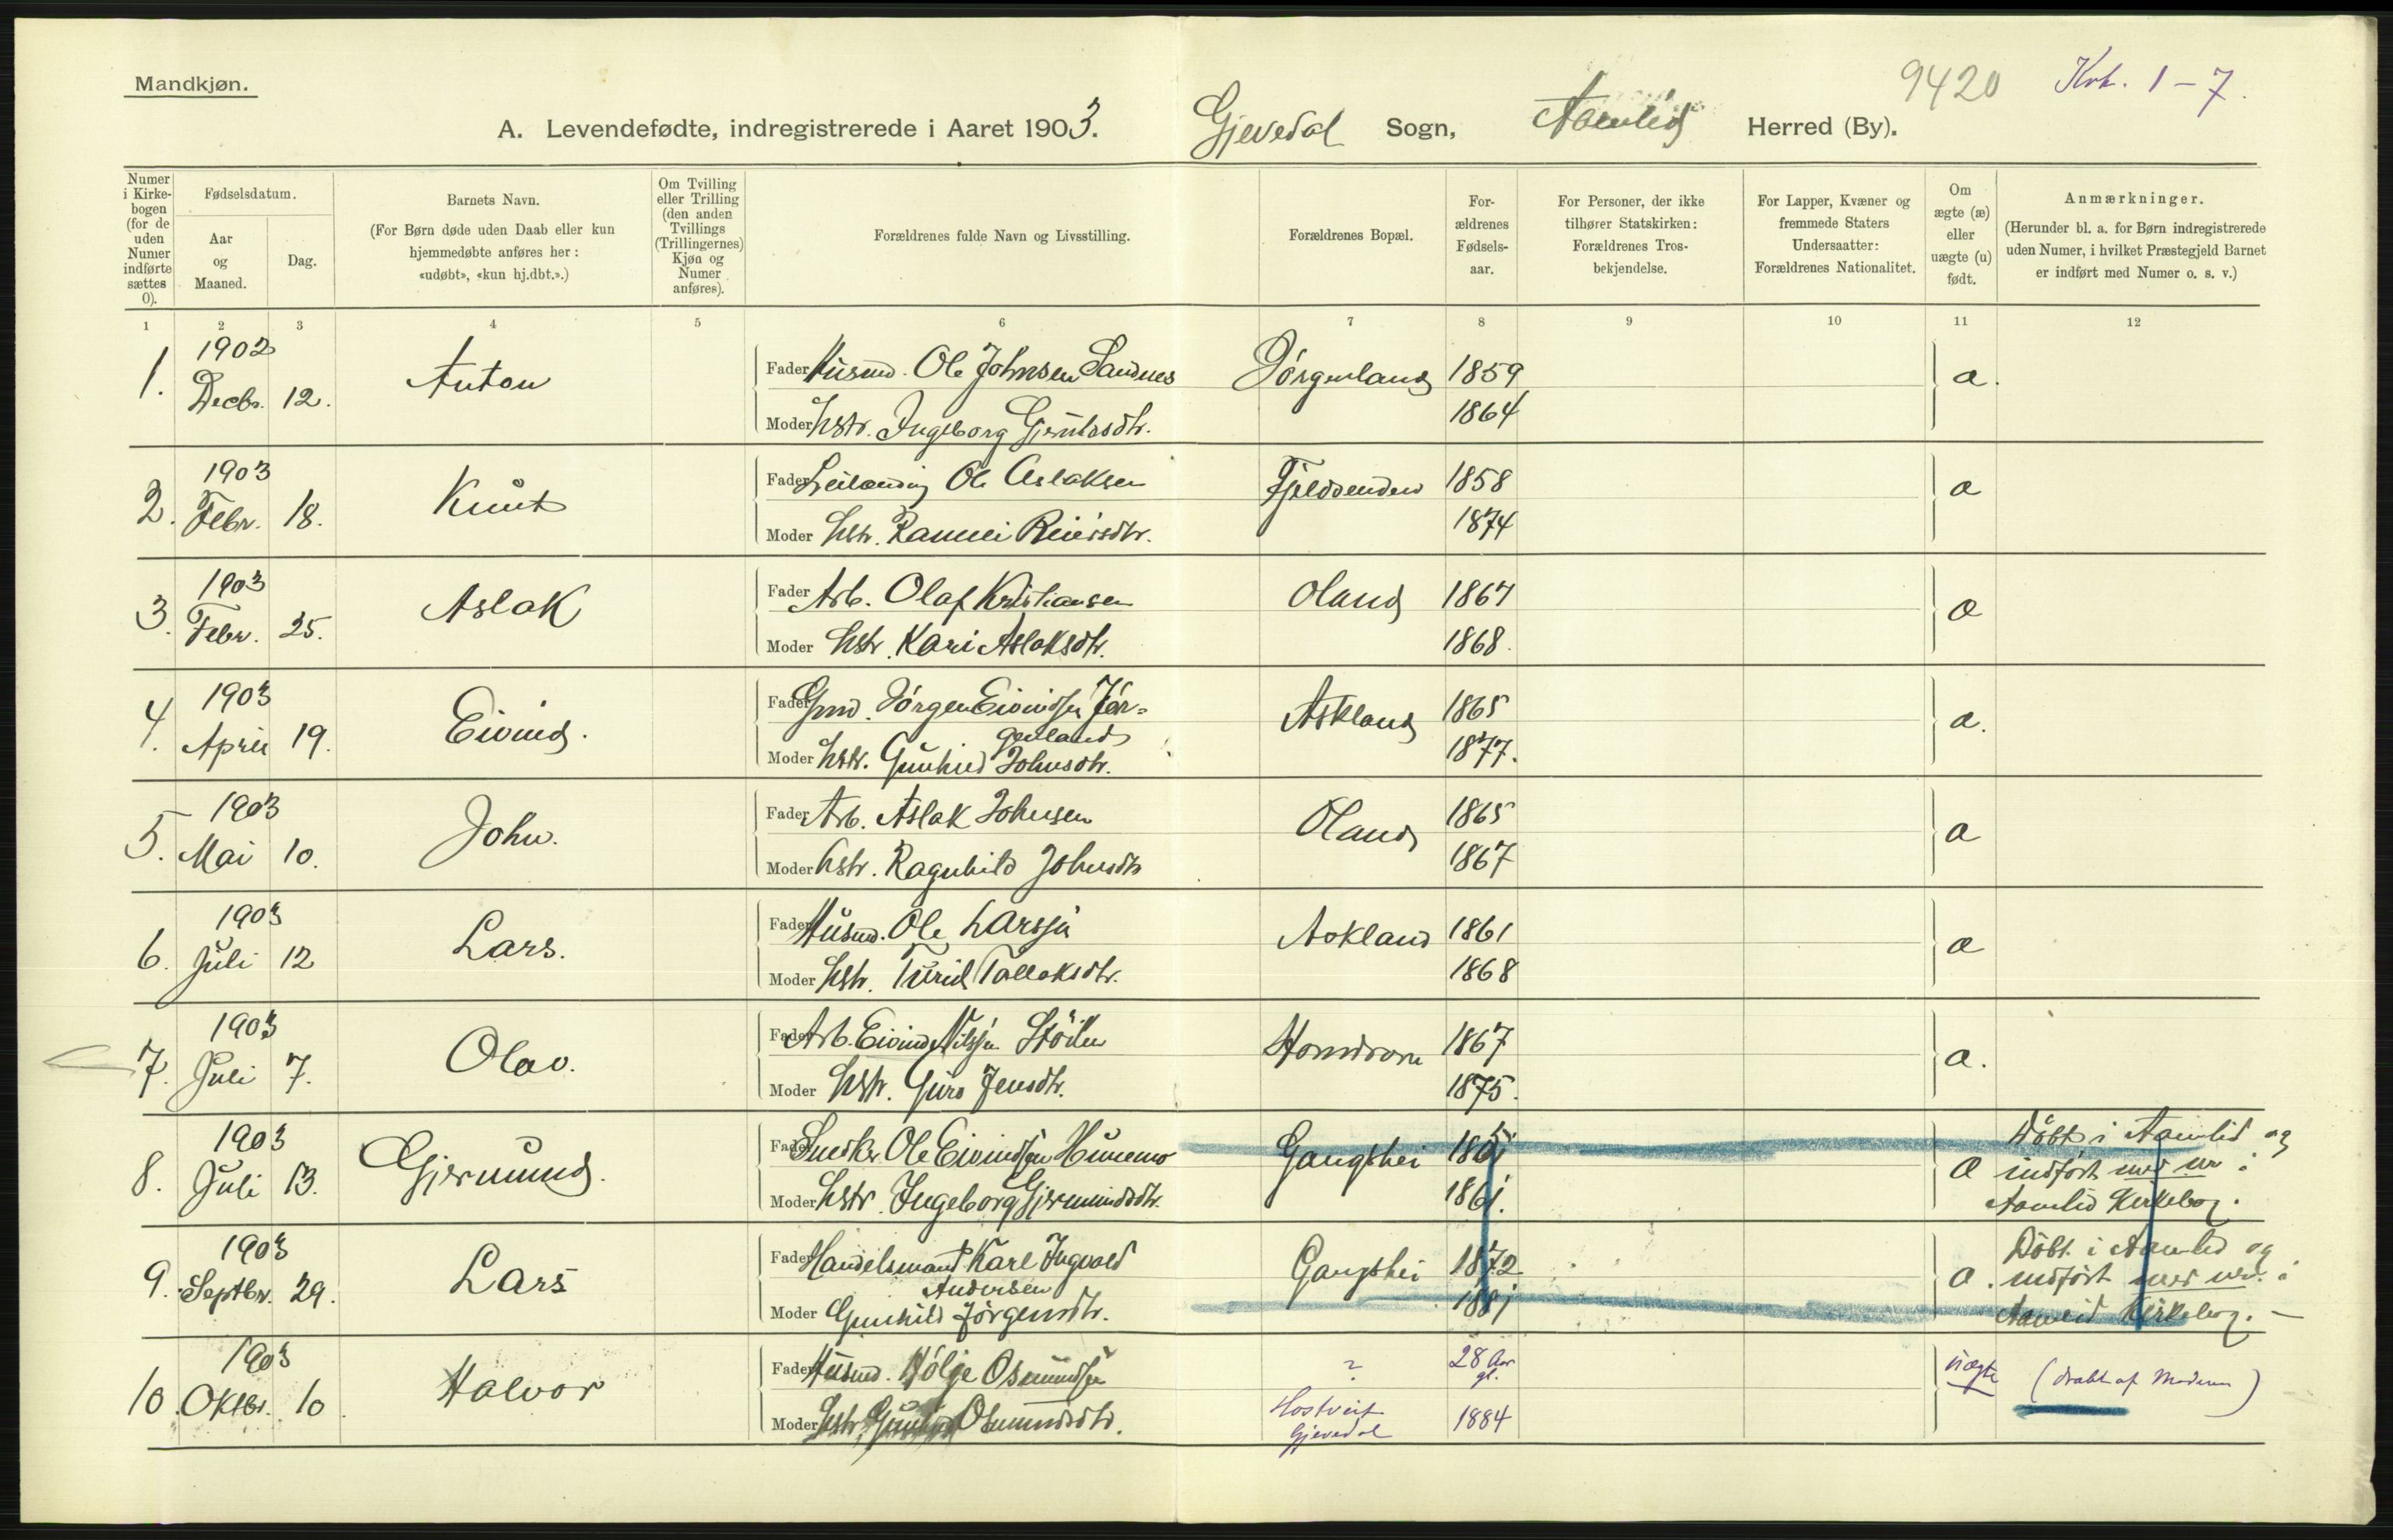 Mandkjøn.
9420 Krk. 1-7.
A. Levendefødte, indregistrerede i Aaret 1903. Gjevedal Sogn, Aamlid Herred (By).
Numer i Kirkebogen (for de uden Numer indførte sættes 0).
Fødselsdatum.
Aar og Maaned.
Dag.
Barnets Navn.
(For Børn døde uden Daab eller kun hjemmedøbte anføres her: «udøbt», «kun hj.dbt.».)
Om Tvilling eller Trilling (den anden Tvillings (Trillingernes) Kjøn og Numer anføres).
Forældrenes fulde Navn og Livsstilling.
Forældrenes Bopæl.
Forældrenes Fødselsaar.
For Personer, der ikke tilhører Statskirken: Forældrenes Trosbekjendelse.
For Lapper, Kvæner og fremmede Staters Undersaatter: Forældrenes Nationalitet.
Om ægte (æ) eller uægte (u) født.
Anmærkninger.
(Herunder bl. a. for Børn indregistrerede uden Numer, i hvilket Præstegjeld Barnet er indført med Numer o. s. v.)
1 2 3 4 5 6 7 8 9 10 11 12
1. 1902 Decbr. 12. Anton Fader Husmd. Ole Johnsen Sandnes Jörgenland 1859 a.
Moder Hstr. Ingeborg 1864
2. 1903 Febr. 18. Knut Fader Leilænding Ole Aslaksen 1858 a
Moder Hstr. Rannei Reiersdtr. 1874
3. 1903 Febr. 25. Aslak Fader Arb. Olaf Kristiansen Oland 1867 a
Moder Hstr. Kari Aslaksdtr. 1868.
4. 1903 April 19. Eivind. Fader Gmd. Jörgen Eivindsen Jör-
genland Askland 1865 a.
Moder Hstr. Gunhild Johnsdtr. 1877.
5. 1903 Mai 10. John. Fader Arb. Aslak Johnsen Oland 1865 a
Moder Hstr. Ragnhild Johnsdtr 1867
6. 1903 Juli 12 Lars. Fader Husmd. Ole Larssen Askland 1861 a
Moder Hstr. Turid Tallaksdtr. 1868
7. 1903 Juli 7. Olav. Fader Arb. Eivind Nilssen 1867 a.
Moder Hstr. Guro Jensdtr. 1875.
8. 1903 Juli 13. Gjermund. Fader Snedker Ole Eivindsen Hunemo Gangshei Döbt i Aamlid og
Moder Hstr. Ingeborg Gjermundsdtr. 1861. a indført med nr i
Aamlid Kirkebog.
9. 1903 Septbr. 29. Lars Fader Handelsmand Karl Ingvald
Andersen Gangshei 1872 Döbt i Aamlid og
Moder Gunhild Jörgensdtr. 1881 a. indført med nr. i
Aamlid Kirkebog. –
10. 1903 Oktbr. 10. Halvor Fader Husmd. Hölje Osmundsen ? 28 Aar gl. uægte (dræbt af Moderen)
Moder Hstr. Osmundsdtr. Hostveit Gjevedal 1884